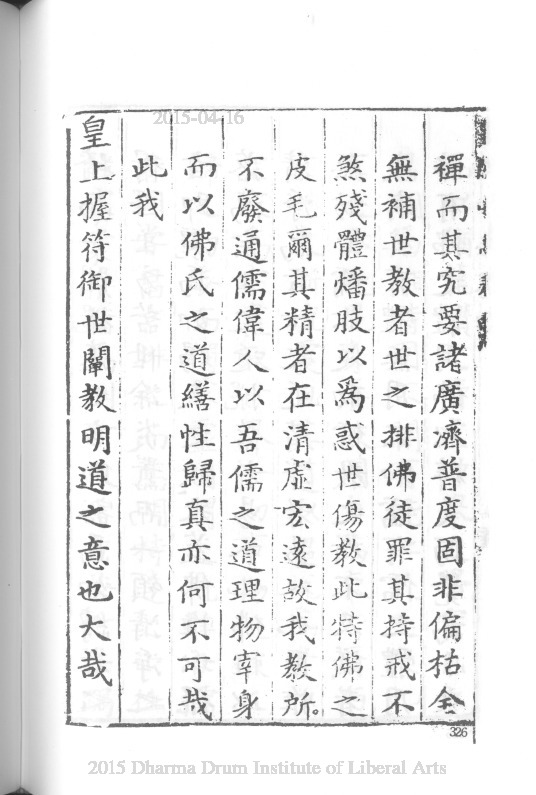 2015-04-16
禪而其究要諸廣濟普度固非偏枯全
無補世教者世之排佛徒罪其持戒不
煞殘體燔肢以爲惑世傷教此特佛之
皮毛爾其精者在清虛宏遠故我教所
不廢通儒偉人以吾儒之道理物宰身
而以佛氏之道繕性歸真亦何不可哉
此我
皇上握符御世闡教明道之意也大哉
326
2015 Dharma Drum Institute of Liberal Arts